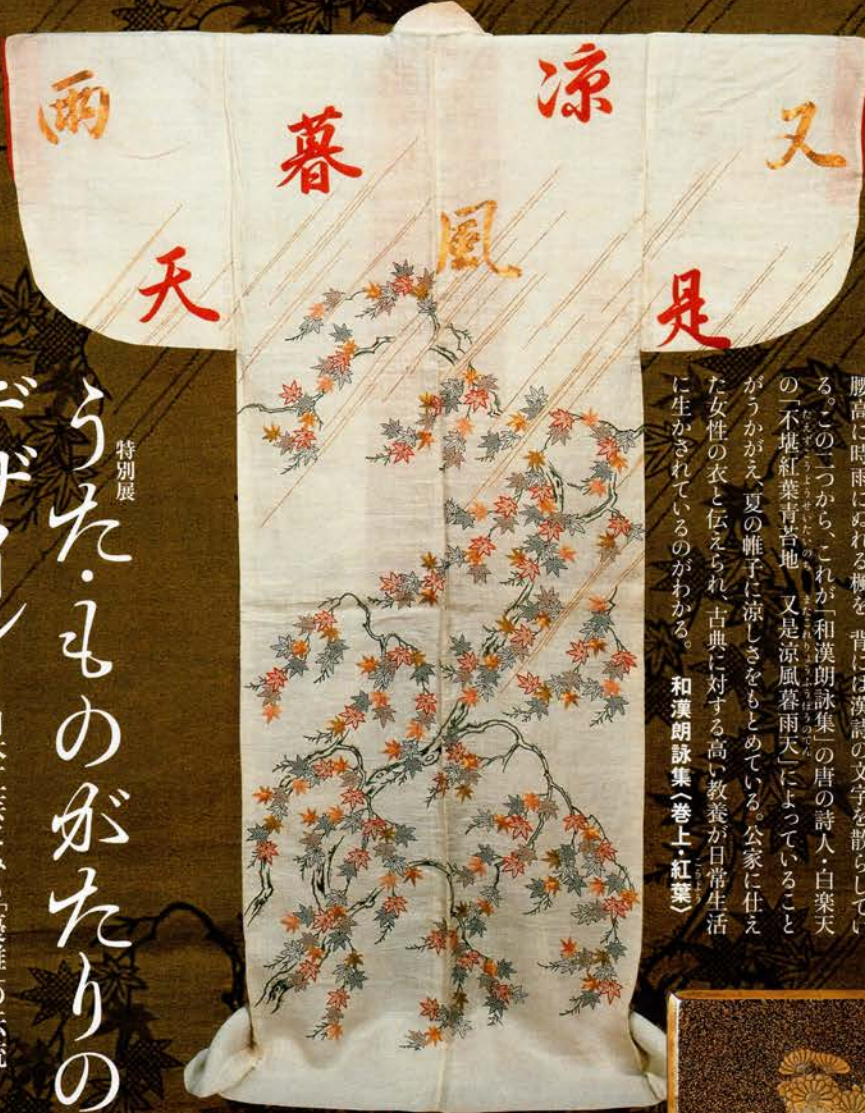 時雨にぬれる楓、背には漢詩の文字を散らしてい
る。この二つから、これが「和漢朗詠集」の唐の詩人・白楽天
の「不堪紅葉青苔地　又是涼風暮雨天」によっていること
がうかがえ、夏の帷子に涼しさをもとめている。公家に仕え
た女性の衣と伝えられ、古典に対する高い教養が日常生活
に生かされているのがわかる。　和漢朗詠集〈巻上・紅葉〉
又
是
凉
風
暮
雨
天
特別展
うた・ものがたりの
デザイン
日本工芸にみる「優雅」の伝統